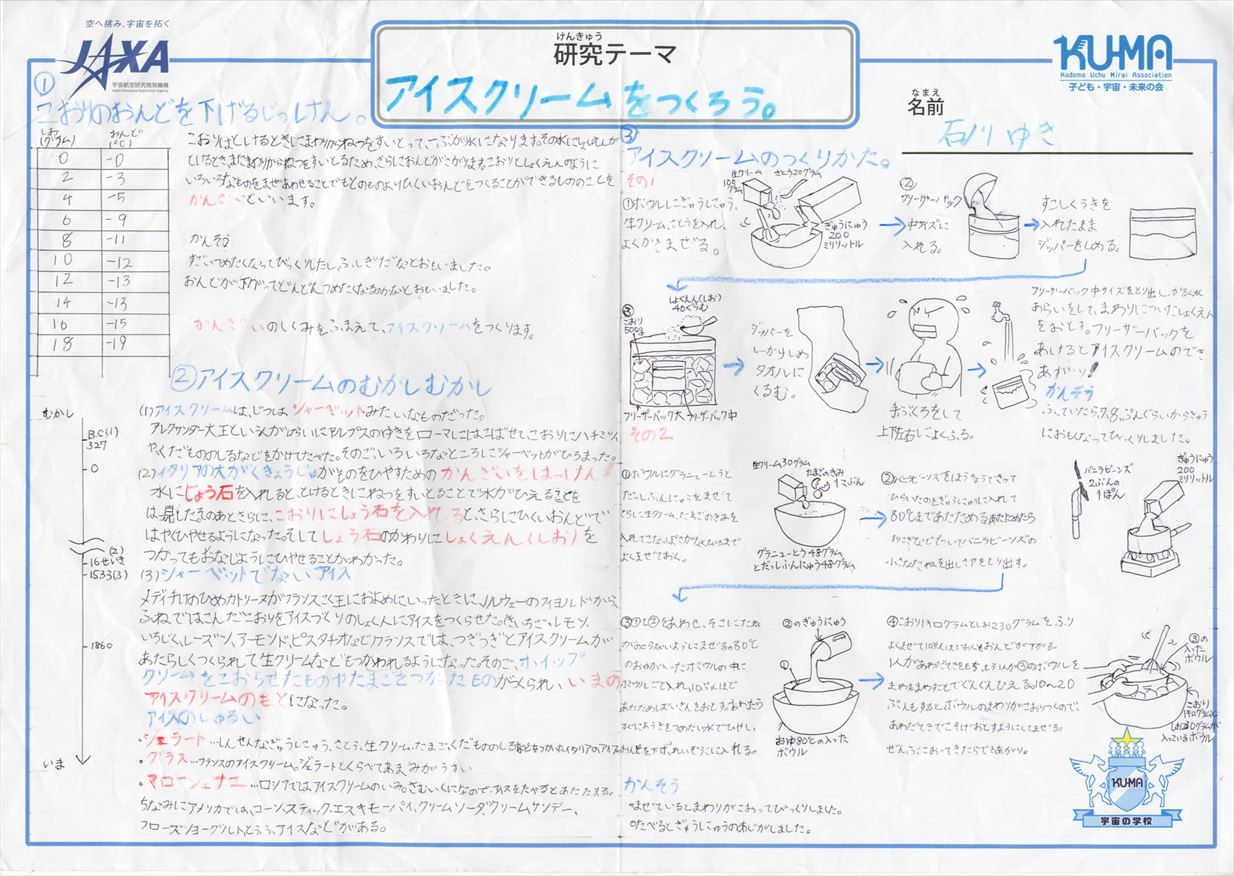 空へ挑み、宇宙を拓く
JAXA
宇宙航空研究開発機構
Japan Aerospace Exploration Agency
けんきゅう
研究テーマ
アイスクリームをつくろう。
KU-MA
Kodomo Uchu Mirai Association
子ども・宇宙・未来の会
なまえ
名前
石川 ゆき
①
こおりのおんどを下げるじっけん。
しお(グラム) おんど(℃)
0 -0
2 -3
4 -5
6 -9
8 -11
10 -12
12 -13
14 -13
16 -15
18 -19
こおりはとけるときにまわりからねつをすいとって、
いろいろなものをまぜあわせることでもとのものよりひくいおんどをつくることができるもののことを
かんざいといいます。
かんそう
すごいつめたくなってびっくりしたし、ふしぎだなとおもいました。
おんどが下がってどんどんつめたくなるのかなとおもいました。
かんざいのしくみをふまえて、アイスクリームをつくります。
②アイスクリームのむかしむかし
むかし
B.C(1)
327
0
(2)
16せいき
1533(3)
1860
いま
(1)アイスクリームは、じつは シャーベットみたいなものだった。
アレクサンダー大王という人がへいたいにアルプスのゆきをローマにはこばせてこおりにハチミツ、
やくだもののしるなどをかけてたべた。そのご、いろいろなところにシャーベットがひろまった。
(2)イタリアの大がくきょうじゅがものをひやすための かんざいをはっけん!
水にしょう石を入れると、とけるときにねつをすいとることで水がひえることを
はっ見したそのあとさらに、こおりにしょう石を入れると、さらにひくいおんどで
はやくひやせるようになった。そして しょう石のかわりに しょくえん(しお)を
つかってもおなじようにひやせることがわかった。
(3)シャーベットでないアイス
メディチけのひめカトリーヌがフランスこく王におよめにいったときに、ノルウェーのフィヨルドから、
ふねではこんだこおりをアイスづくりのしょく人にアイスをつくらせた。きいちご、レモン、
いちじく、レーズン、アーモンド、ピスタチオなどフランスでは、つぎつぎとアイスクリームが
あたらしくつくられて生クリームなどもつかわれるようになった。そのご、ホイップ
クリームをこおらせたものやたまごをつかったものがつくられ、いまの
アイスクリームのもとになった。
アイスのしゅるい
・ジェラート…しんせんなぎゅうにゅう、さとう、生クリーム、たまご、くだもののしるなどをつかったイタリアのアイス
・グラス…フランスのアイスクリーム。ジェラートとくらべてあまみがうすい
・マロージュナエ…ロシアではアイスクリームのいみ。さむいくになので、アイスをたべるとあたたまる。
ちなみにアメリカでは、コーン、スティック、エスキモーパイ、クリームソーダ、クリームサンデー、
フローズンヨーグルト、とうふ、アイスなどがある。
③
アイスクリームのつくりかた。
その1
①ボウルにぎゅうにゅう、
生クリーム、さとうを入れ、
よくかきまぜる。
生クリーム
100グラム
さとう20グラム
ぎゅうにゅう
200
ミリリットル
②
フリーザーバック
中サイズに
入れる。
すこしくうきを
入れたまま
ジッパーをしめる。
③
こおり
500g
しょくえん(しお)
40ぐらむ
フリーザーバック大 フリーザーバック中
ジッパーを
しっかりしめ
タオルに
くるむ。
手ぶくろをして
上下左右によくふる。
フリーザーバック中サイズをとり出し、かるく水
あらいをして、まわりについたしょくえん
をおとす。フリーザーバックを
あけるとアイスクリームのでき
あがり!
かんそう
ふっていたら、7、8ぷんぐらいからきゅう
におもくなってびっくりしました。
その2
①ボウルにグラニューとうと
だっしふんにゅうをまぜて
さらに生クリーム、たまごのきみを
よくまぜておく。
生クリーム30グラム
たまごのきみ
1こぶん
グラニューとう48グラム
とだっしふんにゅう48グラム
②バニラビーンズをほうちょうできって
ひらいたのをぎゅうにゅうに入れて
80℃まであたためるあたためたら
小さなたねを出してさやをとり出す。
バニラビーンズ
2ぶんの
1ぽん
ぎゅうにゅう
200
ミリリットル
③①と②をあわせ、そこにこたね
がのこらないようにまぜる。80℃
のおゆが入ったボウルの中に
ボウルごと入れ、10ぷんほど
おんどを下げ、れいぞうこに入れる。
②のぎゅうにゅう
①
おゆ80℃の入った
ボウル
④こおり1キログラムとしお230グラムを、ふり
1人があわだてきをもち、もう1人が③のボウルを
まわすことでぐんぐんひえる。10〜20
ぷんもするとボウルのまわりがこおりつくので、
あわだてきでこそげおとすようにしてまぜる。
ぜんぶこおってきたらできあがり。
③の
入った
ボウル
こおり
1キログラムと
しお230グラムが
入っているボウル
かんそう
○まぜているとまわりがこおってびっくりしました。
○たべるとぎゅうにゅうのあじがしました。
KU-MA
宇宙の学校